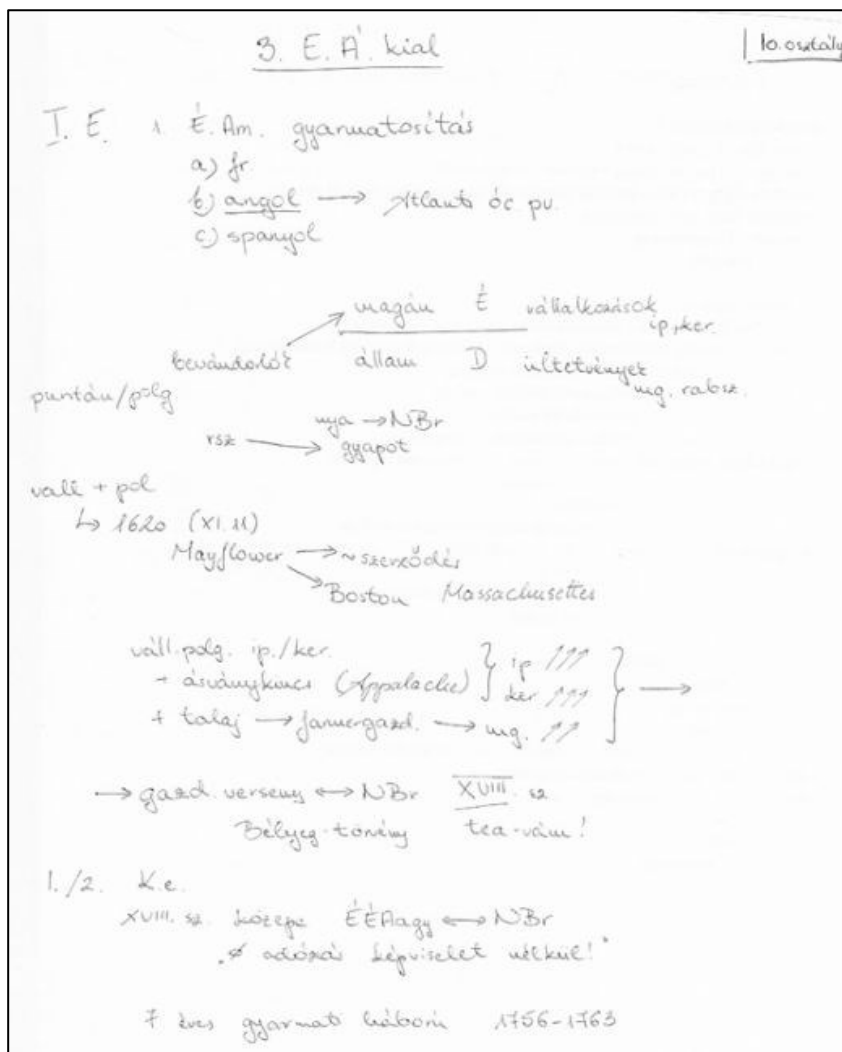 3. E. Á. kial
10. osztály
I. E. 1. É. Am. gyarmatosítás
a) fr.
b) angol → Atlanti óc pv.
c) spanyol
magán É vállalkozások
ip, ker.
bevándorlók állam D ültetvények
mg. rabsz.
puritán/polg
nya → NBr
rsz → gyapot
vall + pol
↳ 1620 (XI. 11)
Mayflower → ~szerződés
Boston Massachusettes
váll. polg. ip./ker.
+ ásványkincs (Appalache) } ip ↑↑↑
ker ↑↑↑ } →
+ talaj → farmergazd. → mg. ↑↑
→ gazd. verseny ↔ NBr XVIII. sz
Bélyeg-törvény tea-vám!
I./2. K.e.
XVIII. sz. közepe ÉÉAagy ↔ NBr
"∅ adózás képviselet nélkül!"
7 éves gyarmati háború 1756-1763